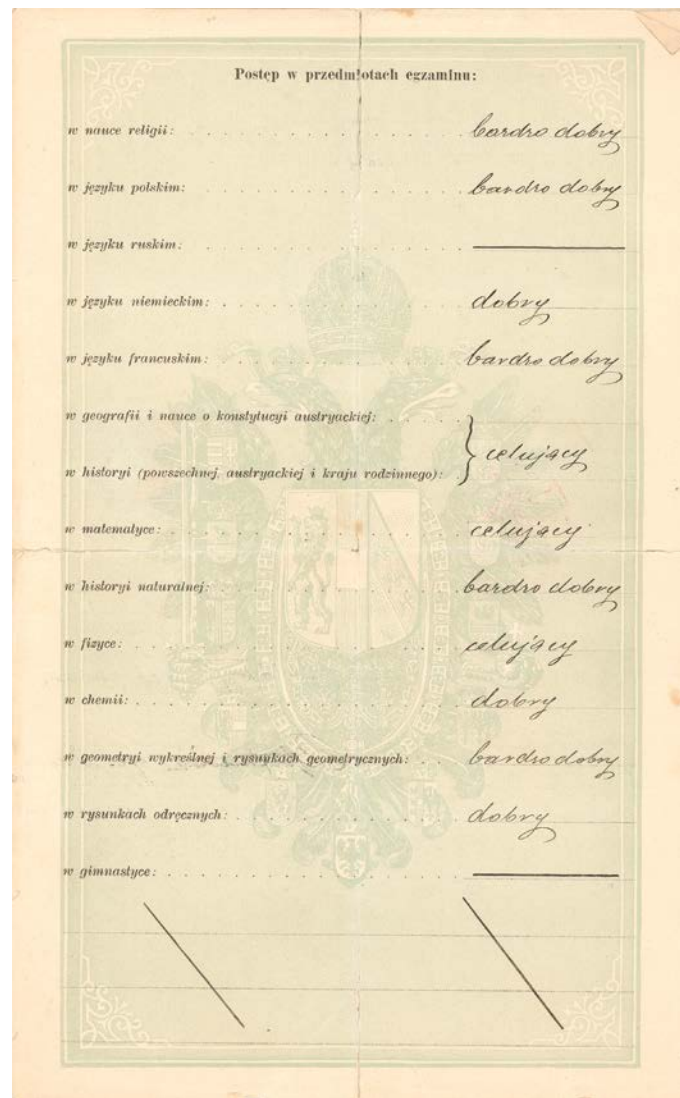 Postęp w przedmiotach egzaminu:
w nauce religii: bardzo dobry
w języku polskim: bardzo dobry
w języku ruskim:
w języku niemieckim: dobry
w języku francuskim: bardzo dobry
w geografii i nauce o konstytucyi austryackiej:
celujący
w historyi (powszechnej, austryackiej i kraju rodzinnego):
w matematyce: celujący
w historyi naturalnej: bardzo dobry
w fizyce: celujący
w chemii: dobry
w geometryi wykreślnej i rysunkach geometrycznych: bardzo dobry
w rysunkach odręcznych: dobry
w gimnastyce: